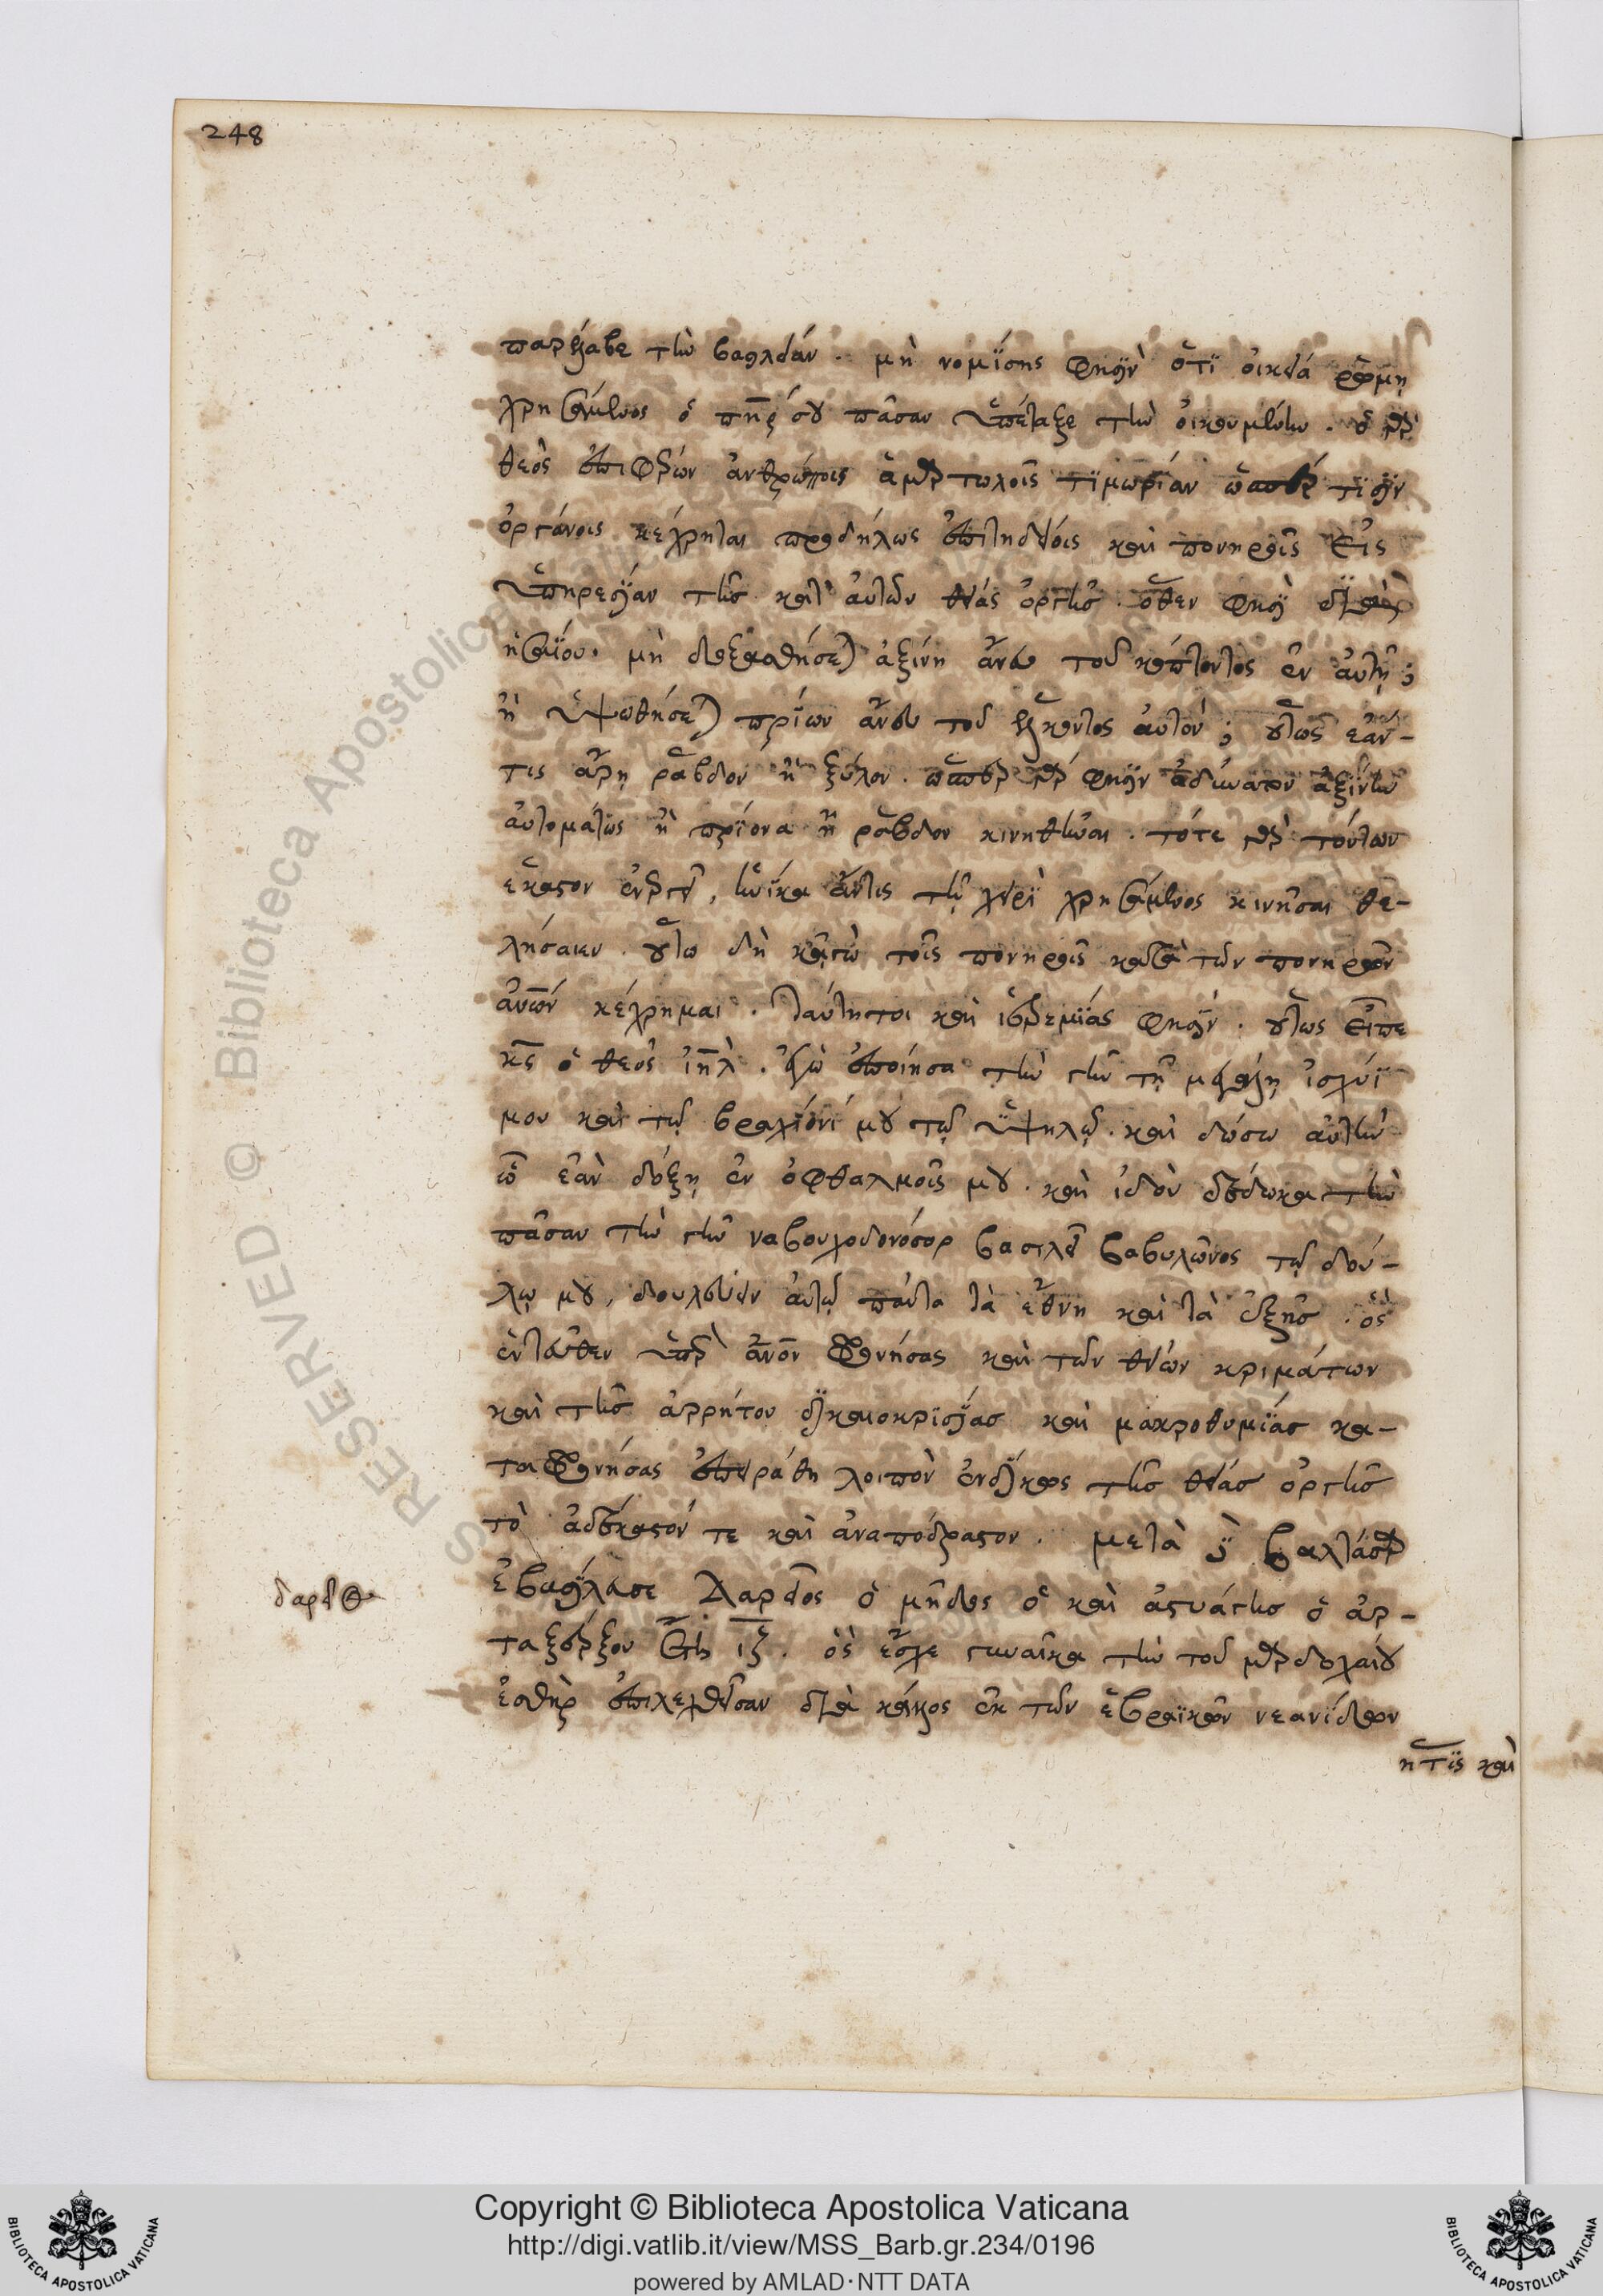 248
παρέλαβε τὴν βασιλείαν. μὴ νομίσης φησὶν ὅτι οἰκεία ῥώμη
χρησάμενος ὁ πηρ σου πᾶσαν ὑπέταξε τὴν οἰκουμένην. ὁ γὰρ
θεὸς ἐπιφέρων ἀνθρώποις ἁμαρτωλοῖς τιμωρίαν ὥσπερ τισὶν
ὀργάνοις κέχρηται προδήλως ἐπιτηδείοις καὶ πονηροῖς εἰς
ὑπηρεσίαν τῆς κατ' αὐτῶν θείας ὀργῆς. ὅθεν φησὶ διὰ
ἡσαΐου. μὴ δοξασθήσεται ἀξίνη ἄνευ τοῦ κόπτοντος ἐν αὐτῇ;
ἢ ὑψωθήσεται πρίων ἄνευ τοῦ ἕλκοντος αὐτόν; οὕτως ἐάν-
τις ἄρῃ ῥάβδον ἢ ξύλον. ὥσπερ γάρ φησιν ἀδύνατον ἀξίνην
αὐτομάτως ἢ πρίονα ἢ ῥάβδον κινηθῆναι. τότε γὰρ τούτων
ἕκαστον ἐνεργεῖ, ἡνίκα ἄντις τῇ χειρὶ χρησάμενος κινῆσαι θε-
λήσειεν. οὕτω δὴ κἀγὼ τοῖς πονηροῖς κατὰ τῶν πονηρῶν
ἀνων κέχρημαι. ταύτητοι καὶ ἱερεμίας φησίν. οὕτως εἶπε
κς ὁ θεὸς ιηλ. ἐγὼ ἐποίησα τὴν γῆν τῇ μεγάλῃ ἰσχύϊ
μου καὶ τῷ βραχίονί μου τῷ ὑψηλῷ. καὶ δώσω αὐτὴν
ᾧ ἐὰν δόξῃ ἐν ὀφθαλμοῖς μου. καὶ ἰδοὺ δέδωκα τὴν
πᾶσαν τὴν γῆν ναβουχοδονόσορ βασιλεῖ βαβυλῶνος τῷ δού-
λῳ μου, δουλεύειν αὐτῷ πάντα τὰ ἔθνη καὶ τὰ ἑξῆς. ὃς
ἐντεῦθεν ὑπὲρ ἄνον φρονήσας καὶ τῶν θείων κριμάτων
καὶ τῆς ἀρρήτου δικαιοκρισίας καὶ μακροθυμίας κα-
ταφρονήσας ἐπειράθη λοιπὸν ἐνδίκως τῆς θείας ὀργῆς
τὸ ἀδέκαστόν τε καὶ ἀναπόδραστον. μετὰ δὲ βαλτάσαρ
ἐβασίλευσε Δαρεῖος ὁ μῆδος ὁ καὶ ἀστυάγης ὁ ἀρ-
ταξέρξου ἔτη ιζ. ὃς ἔσχε γυναῖκα τὴν τοῦ μαρδοχαίου
ἐσθὴρ ἐπιλεχθεῖσαν διὰ κάλλος ἐκ τῶν ἑβραϊκῶν νεανίδων
ητις καὶ
δαρεῖος
RESERVED © Biblioteca Apostolica
BIBLIOTECA APOSTOLICA VATICANA
Copyright © Biblioteca Apostolica Vaticana
http://digi.vatlib.it/view/MSS_Barb.gr.234/0196
powered by AMLAD·NTT DATA
BIBLIOTECA APOSTOLICA VATICANA